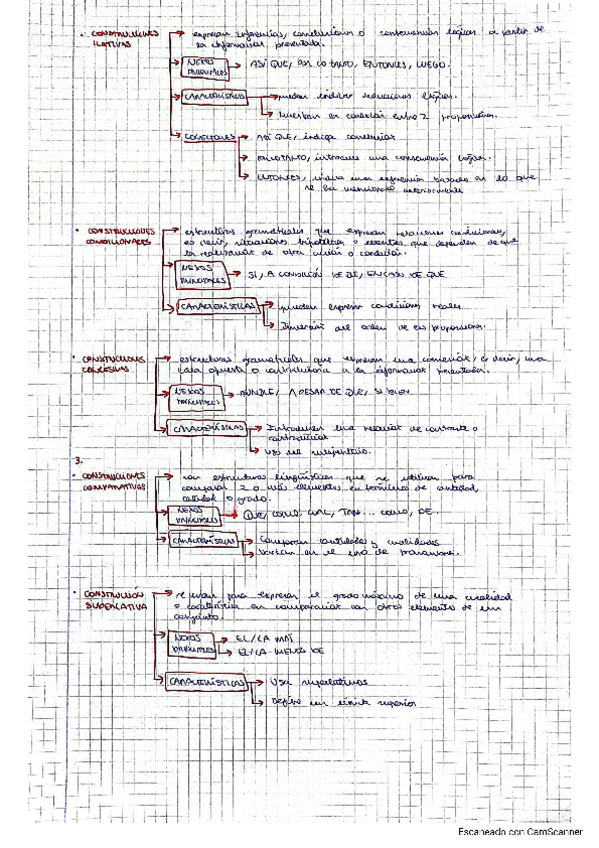 · CONSTRUCCIONES ILATIVAS → expresan inferencias, conclusiones o consecuencias lógicas a partir de
la información presentada.
NEXOS PRINCIPALES → ASÍ QUE, POR LO TANTO, ENTONCES, LUEGO.
CARACTERÍSTICAS → pueden indicar relaciones lógicas.
→ Muestran la conexión entre 2 proposiciones.
CONECTORES → ASÍ QUE, indica conclusión
→ POR LO TANTO, introduce una consecuencia lógica.
→ ENTONCES, indica una inferencia basada en lo que
se ha mencionado anteriormente
· CONSTRUCCIONES CONDICIONALES → estructuras gramaticales que expresan relaciones condicionales,
es decir, situaciones hipotéticas o eventos que dependen de que
la realización de otra acción o condición.
NEXOS PRINCIPALES → SI, A CONDICIÓN DE QUE, EN CASO DE QUE
CARACTERÍSTICAS → pueden expresar condiciones reales
→ Inversión del orden de las proposiciones.
· CONSTRUCCIONES CONCESIVAS → estructuras gramaticales que expresan una concesión, es decir, una
idea opuesta o contradictoria a la información presentada.
NEXOS PRINCIPALES → AUNQUE, A PESAR DE QUE, SI BIEN
CARACTERÍSTICAS → Introducen una relación de contraste o
contradicción
→ uso del subjuntivo.
3.
· CONSTRUCCIONES COMPARATIVAS → son estructuras lingüísticas que se utilizan para
comparar 2 o más elementos en términos de cantidad,
calidad o grado.
NEXOS PRINCIPALES → QUE, COMO, CUAL, TAN... COMO, DE.
CARACTERÍSTICAS → Comparan cantidades y cualidades
→ Varían en el uso de pronombres.
· CONSTRUCCIÓN SUPERLATIVA → se usan para expresar el grado máximo de una cualidad
o característica en comparación con otros elementos de un
conjunto.
NEXOS PRINCIPALES → EL/LA MÁS
→ EL/LA MENOS DE
CARACTERÍSTICAS → Usa superlativos
→ Define un límite superior
Escaneado con CamScanner